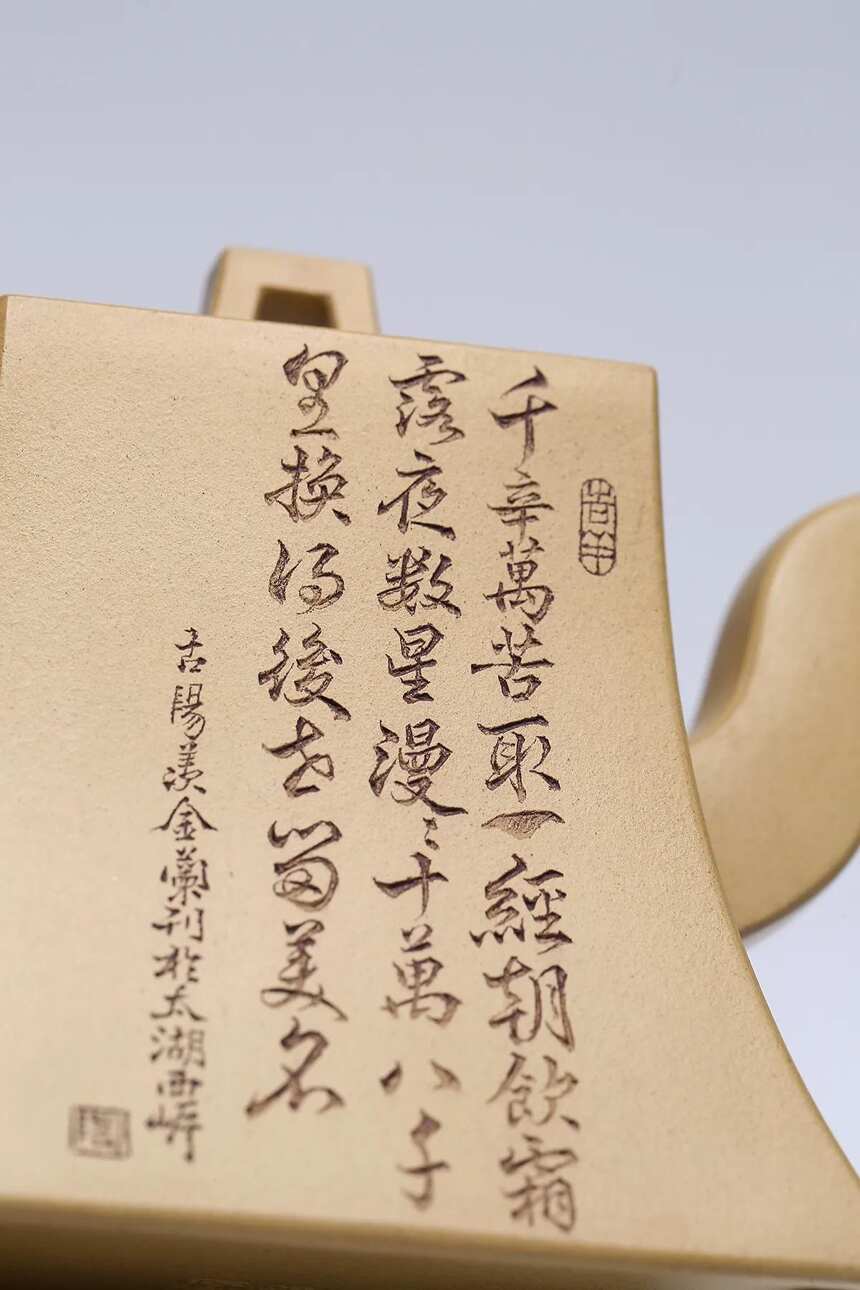 千辛萬苦取一經朝飲霜
露夜数星漫〻十萬八千
里換得後世留美名
古陽羨金蘭刊於太湖西岸